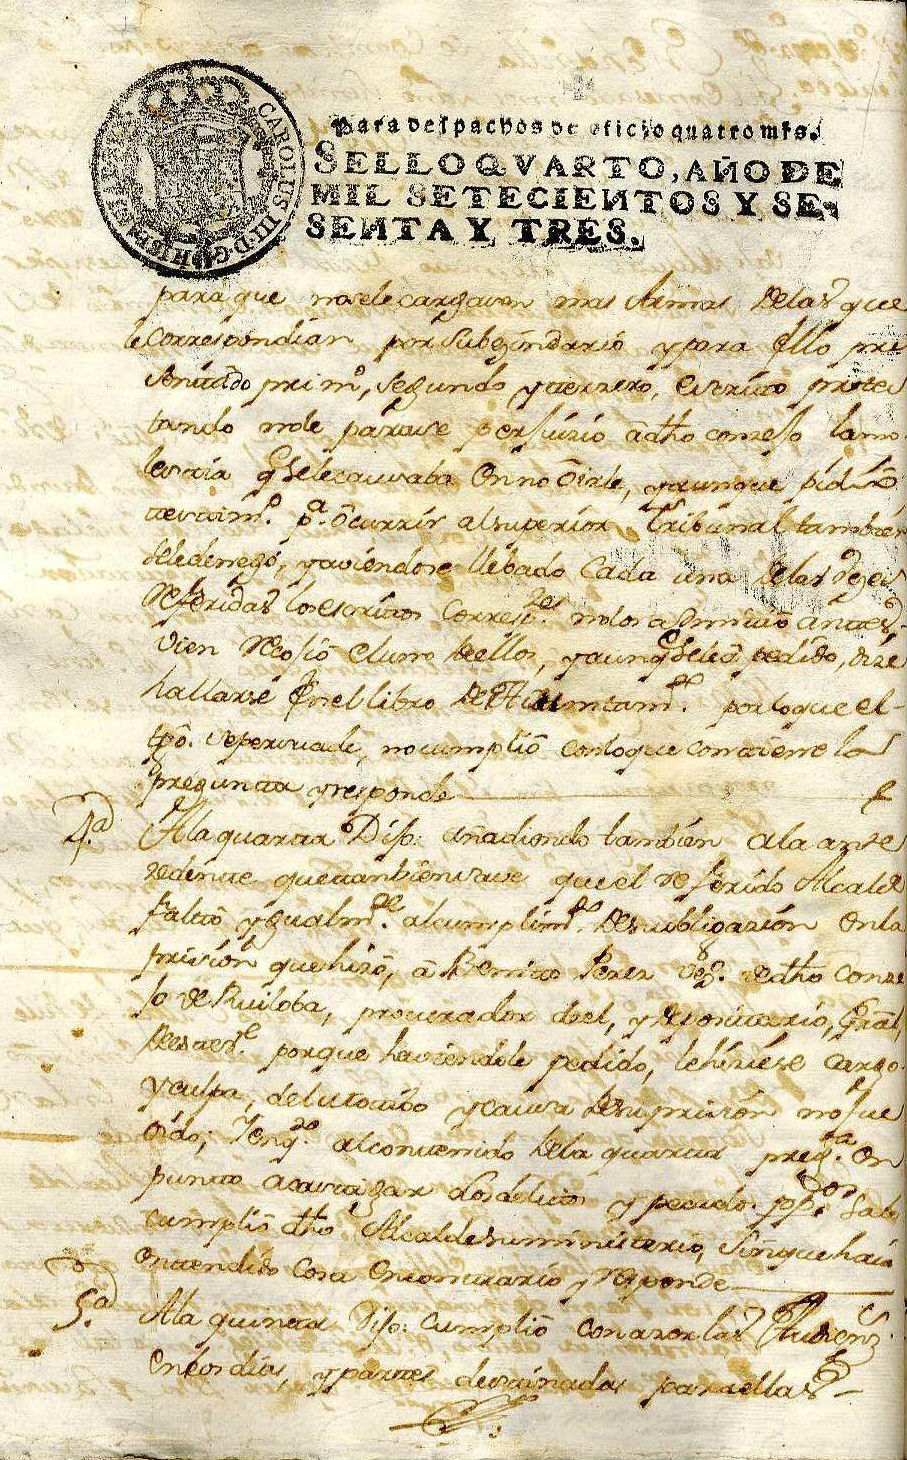 CAROLUS III D G HISP
Para despachos de oficio quatro mrs.
SELLO QVARTO, AÑO DE
MIL SETECIENTOS Y SE-
SENTA Y TRES.
para que no se le cargasen mas Armas de las que
le correspondian por su bezindario y para ello pre
sentado prim.º, segundo y terzero, escrito protes
tando no le parase perjuizio a dho conzejo la mo
lestia q se le causaba en no oirle, y aunque pidio
testim.º p.ª ocurrir al superior tribunal tambien
se le denego, y aviendose llebado cada una de las vezes
referidas los escritos corresp.tes no los admitio antes
vien recojio el uno de ellos, y aunq se le a pedido, dize
hallarse en el libro de Ajuntam.to por lo que el
tgô. se persuade, no cumplio con lo que contiene la
pregunta y responde
4.ª A la quarta Dijo: añadiendo tambien a la ante
zedente que tambien save que el referido Alcalde
falto ygualm.te al cumplim.to de su obligazion en la
prision que hizo, a Benito Perez vez.º de dho conze
jo de Ruiloba, procurador de el, y depositario, Gral,
porque haviendole pedido, le hiziese cargo
y culpa, del motibo y causa de su prision no fue
oido; Y en q.to al contenido de la quarta preg.ta en
punto a castigar los delitos y pecados pp.cos sabe
cumplio dho Alcalde su ministerio, sin que haia
entendido cosa en contrario y responde
5.ª A la quinta Dijo: cumplio con azer las Audienz.s
en los dias, y partes destinados para ellas